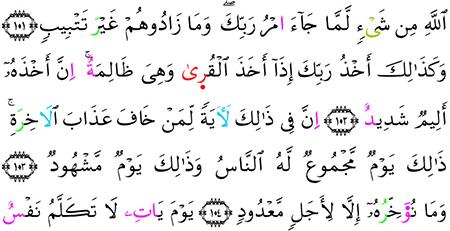 ٱللَّهِ مِن شَىْءٍ لَّمَّا جَآءَ امْرُ رَبِّكَ ۖ وَمَا زَادُوهُمْ غَيْرَ تَتْبِيبٍ ١٠١
وَكَذَٰلِكَ أَخْذُ رَبِّكَ إِذَآ أَخَذَ ٱلْقُرِىٰ وَهْىَ ظَالِمَةٌ ۚ إِنَّ أَخْذَهُۥٓ
أَلِيمٌ شَدِيدٌ ١٠٢ اِنَّ فِى ذَٰلِكَ لَأٓيَةً لِّمَنْ خَافَ عَذَابَ ٱلَاخِرَةِ ۚ
ذَٰلِكَ يَوْمٌ مَّجْمُوعٌ لَّهُ ٱلنَّاسُ وَذَٰلِكَ يَوْمٌ مَّشْهُودٌ ١٠٣
وَمَا نُؤَخِّرُهُۥٓ إِلَّا لِأَجَلٍ مَّعْدُودٍ ١٠٤ يَوْمَ يَاتِۦ لَا تَكَلَّمُ نَفْسٌ